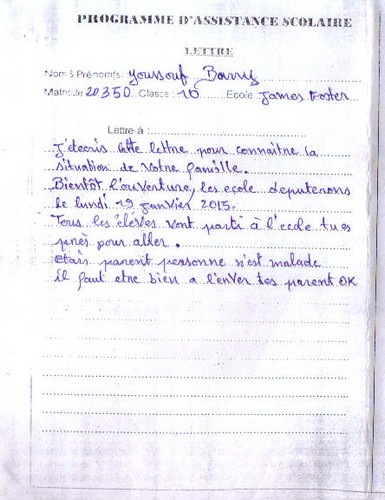 PROGRAMME D'ASSISTANCE SCOLAIRE
LETTRE
Nom & Prénom(s) Youssouf Barry
Matricule 20350 Classe : 10 Ecole James Foster
Lettre à :
J'écris cette lettre pour connaitre la
situation de votre famille.
Bientôt l'ouverture, les ecole deputerons
le lundi 19 janvier 2015.
Tous les élèves vont parti à l'ecole tu es
près pour aller.
etais parent personne n'est malade
il faut etre bien a l'enver tes parent OK